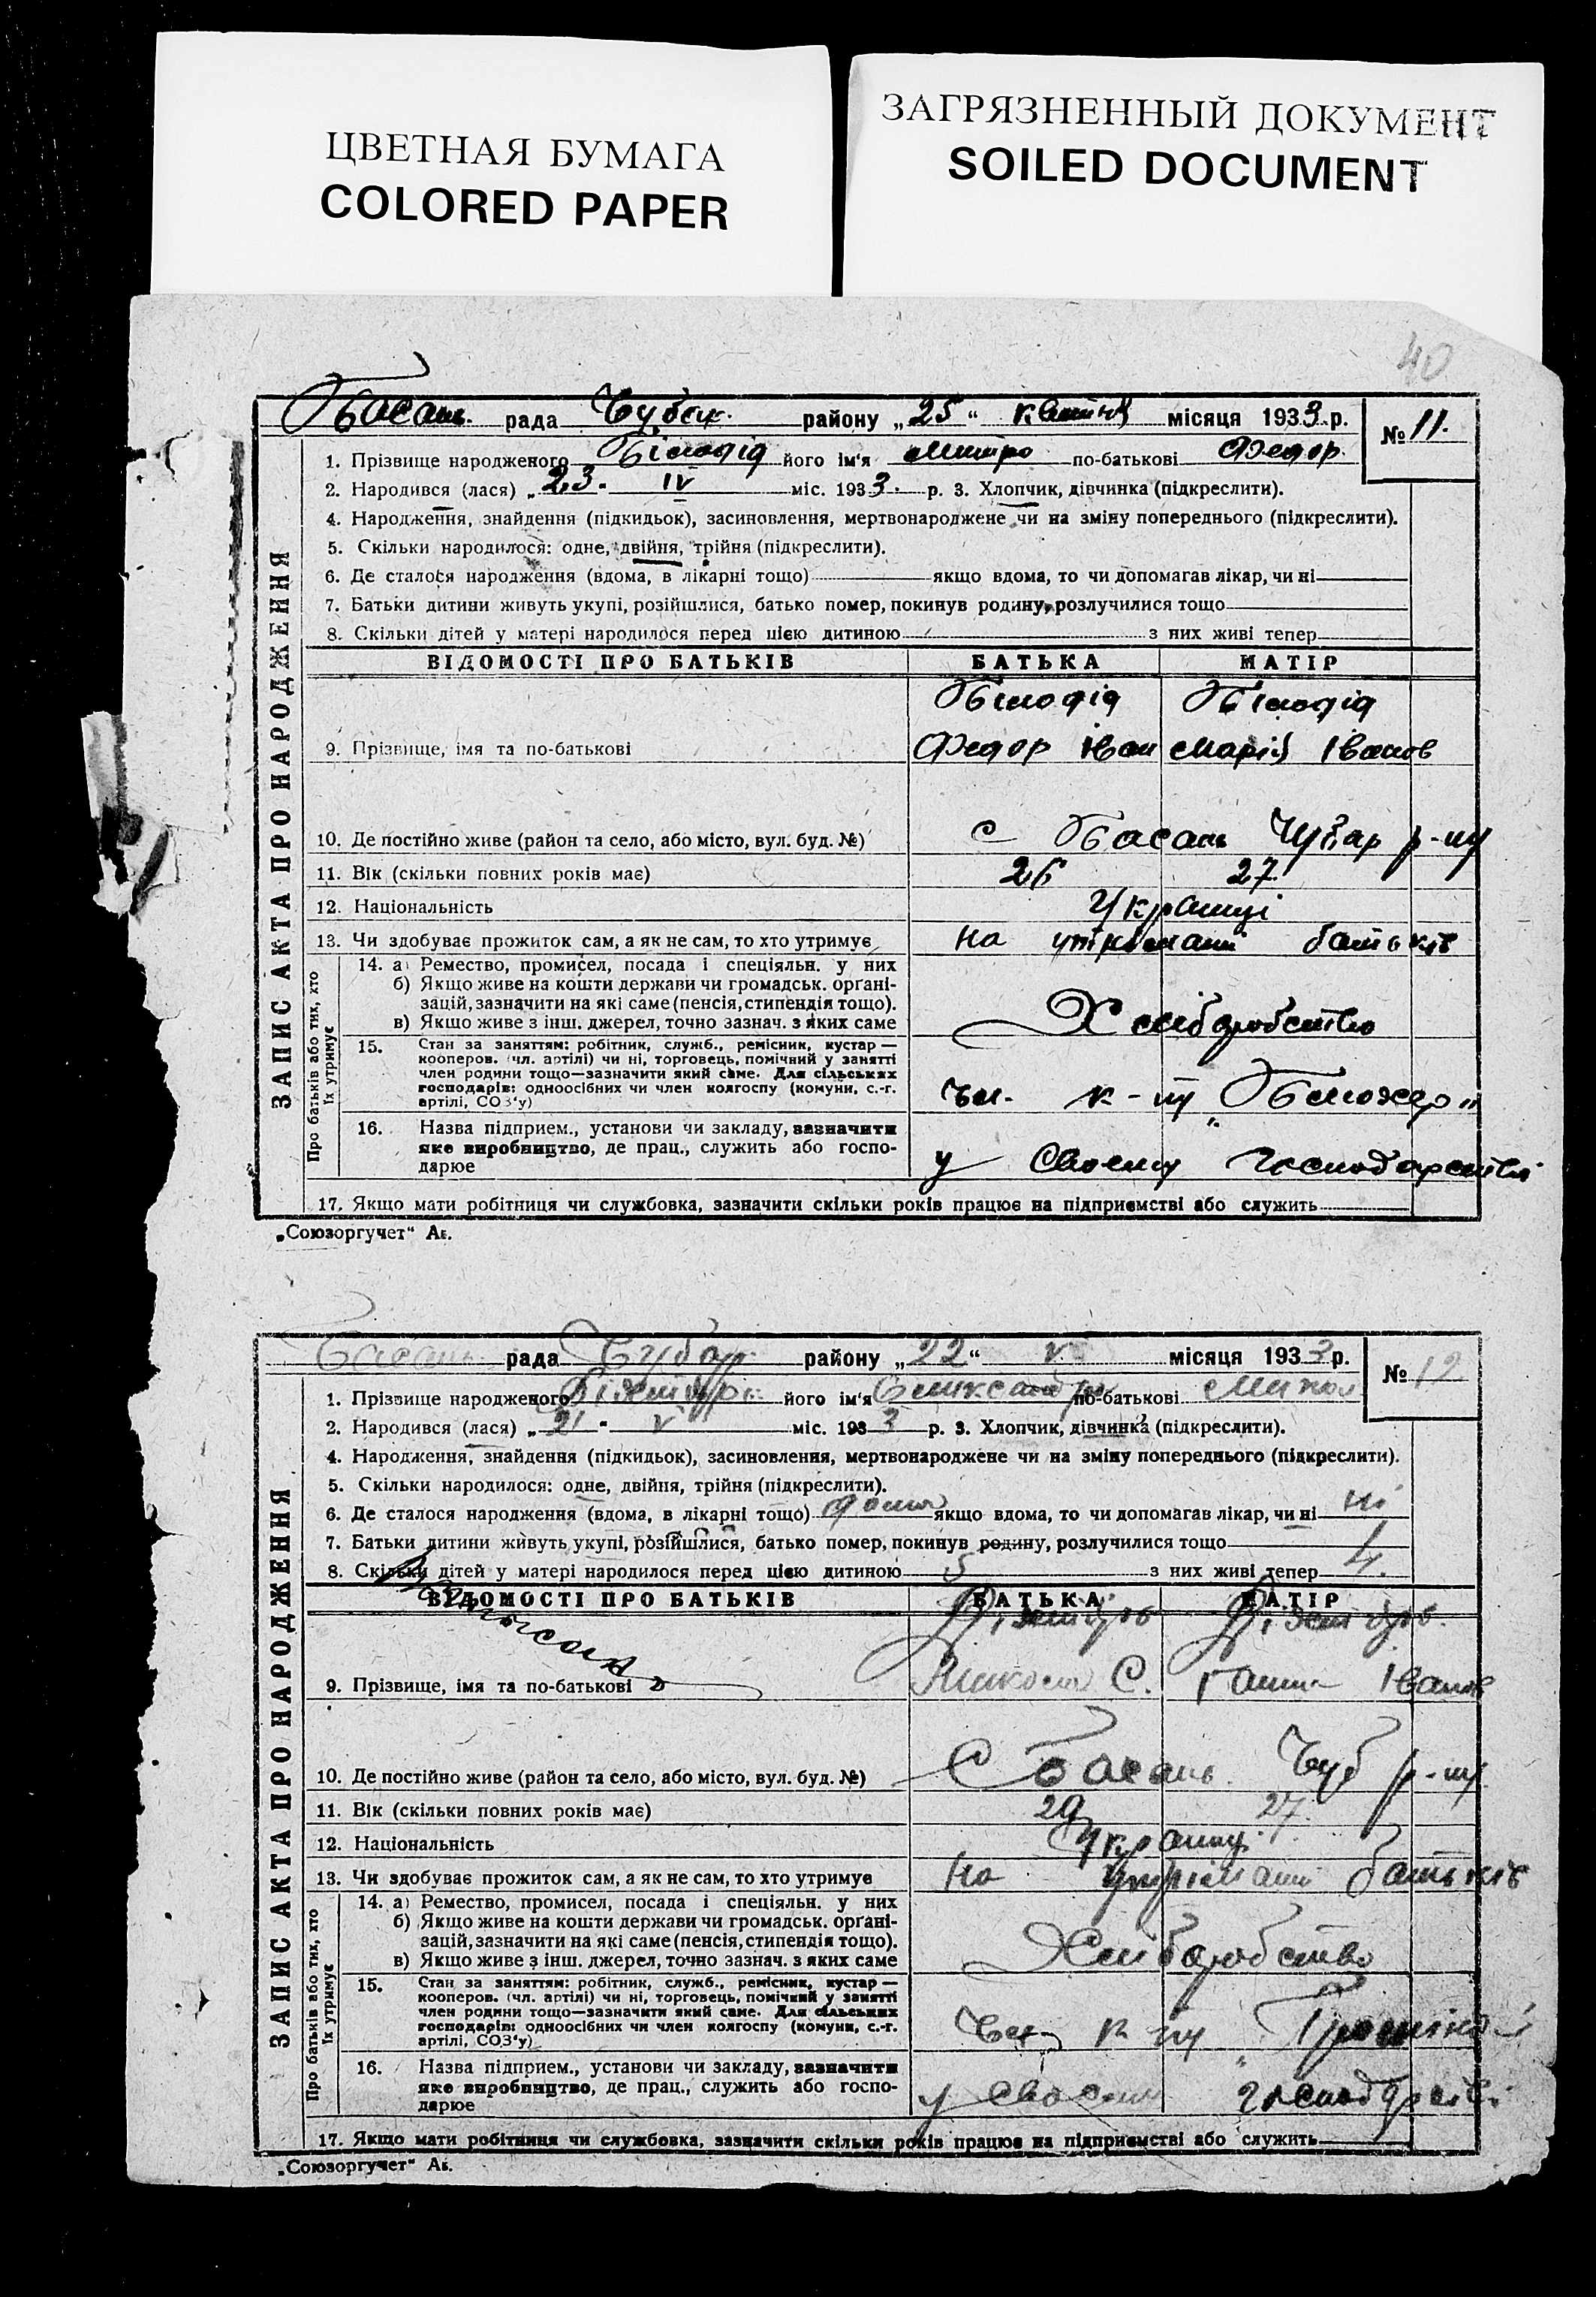 ЦВЕТНАЯ БУМАГА
COLORED PAPER
ЗАГРЯЗНЕННЫЙ ДОКУМЕНТ
SOILED DOCUMENT
40
ЗАПИС АКТА ПРО НАРОДЖЕННЯ
Басань рада Чубар. району „25“ квітня місяця 1933 р. № 11.
1. Прізвище народженого Білодід його ім'я Митро по-батькові Федор.
2. Народився (лася) „23" IV міс. 1933. р. 3. Хлопчик, дівчинка (підкреслити).
4. Народження, знайдення (підкидьок), засиновлення, мертвонароджене чи на зміну попереднього (підкреслити).
5. Скільки народилося: одне, двійня, трійня (підкреслити).
6. Де сталося народження (вдома, в лікарні тощо) якщо вдома, то чи допомагав лікар, чи ні
7. Батьки дитини живуть укупі, розійшлися, батько помер, покинув родину, розлучилися тощо
8. Скільки дітей у матері народилося перед цією дитиною з них живі тепер
ВІДОМОСТІ ПРО БАТЬКІВ БАТЬКА МАТІР
Білодід Білодід
9. Прізвище, імя та по-батькові Федор Іван Марія Іванов
10. Де постійно живе (район та село, або місто, вул. буд. №) с Басань Чубар р-ну
11. Вік (скільки повних років має) 26 27
12. Національність Українці
13. Чи здобуває прожиток сам, а як не сам, то хто утримує на утриманні батьків
Про батьків або тих, хто їх утримує
14. а) Ремество, промисел, посада і спеціяльн. у них
б) Якщо живе на кошти держави чи громадськ. органі-
зацій, зазначити на які саме (пенсія, стипендія тощо).
в) Якщо живе з інш. джерел, точно зазнач. з яких саме Хліборобство
15. Стан за заняттям: робітник, служб., ремісник, кустар —
кооперов. (чл. артілі) чи ні, торговець, помічний у занятті
член родини тощо—зазначити який саме. Для сільських
господарів: одноосібних чи член колгоспу (комуни, с.-г.
артілі, СОЗ'у) Чл. к-пу
16. Назва підприєм., установи чи закладу, зазначити
яке виробництво, де прац., служить або госпо-
дарює у своєму господарстві
17. Якщо мати робітниця чи службовка, зазначити скільки років працює на підприємстві або служить
„Союзоргучет“ Ав.
ЗАПИС АКТА ПРО НАРОДЖЕННЯ
Басань рада Чубар. району „22“ V місяця 1933 р. № 12
1. Прізвище народженого його ім'я по-батькові Микол
2. Народився (лася) „21" V міс. 1933 р. 3. Хлопчик, дівчинка (підкреслити).
4. Народження, знайдення (підкидьок), засиновлення, мертвонароджене чи на зміну попереднього (підкреслити).
5. Скільки народилося: одне, двійня, трійня (підкреслити).
6. Де сталося народження (вдома, в лікарні тощо) дома якщо вдома, то чи допомагав лікар, чи ні ні
7. Батьки дитини живуть укупі, розійшлися, батько помер, покинув родину, розлучилися тощо
8. Скільки дітей у матері народилося перед цією дитиною 5 з них живі тепер 4.
ВІДОМОСТІ ПРО БАТЬКІВ БАТЬКА МАТІР
9. Прізвище, імя та по-батькові Микола С. Ганна Іванов
10. Де постійно живе (район та село, або місто, вул. буд. №) С Басань Чуб р-ну.
11. Вік (скільки повних років має) 29 27.
12. Національність Українці
13. Чи здобуває прожиток сам, а як не сам, то хто утримує на утриманні батьків
Про батьків або тих, хто їх утримує
14. а) Ремество, промисел, посада і спеціяльн. у них
б) Якщо живе на кошти держави чи громадськ. органі-
зацій, зазначити на які саме (пенсія, стипендія тощо).
в) Якщо живе з інш. джерел, точно зазнач. з яких саме Хліборобство
15. Стан за заняттям: робітник, служб., ремісник, кустар —
кооперов. (чл. артілі) чи ні, торговець, помічний у занятті
член родини тощо—зазначити який саме. Для сільських
господарів: одноосібних чи член колгоспу (комуни, с.-г.
артілі, СОЗ'у) Чл. к-пу
16. Назва підприєм., установи чи закладу, зазначити
яке виробництво, де прац., служить або госпо-
дарює у своєму господарстві
17. Якщо мати робітниця чи службовка, зазначити скільки років працює на підприємстві або служить
„Союзоргучет“ Ав.